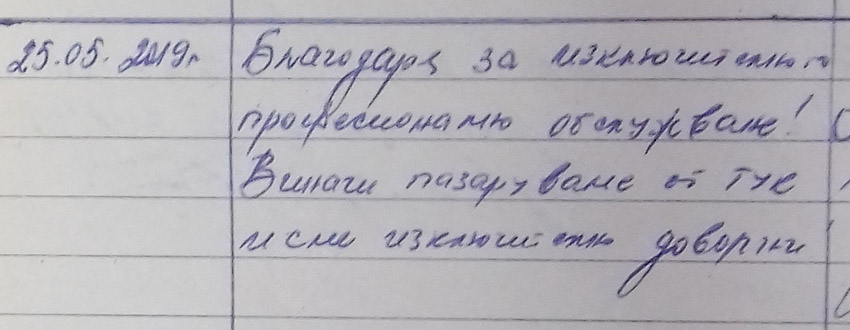 25.05.2019г. Благодаря за изключително
професионално обслужване!
Винаги пазаруваме от тук
и сме изключително доволни!